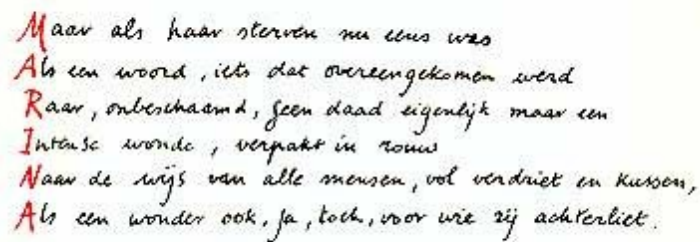 Maar als haar sterven nu eens was
Als een woord, iets dat overeengekomen werd
Raar, onbeschaamd, geen daad eigenlijk maar een
Intense wonde, verpakt in rouw
Naar de wijs van alle mensen, vol verdriet en kussen,
Als een wonder ook, ja, toch, voor wie zij achterliet.